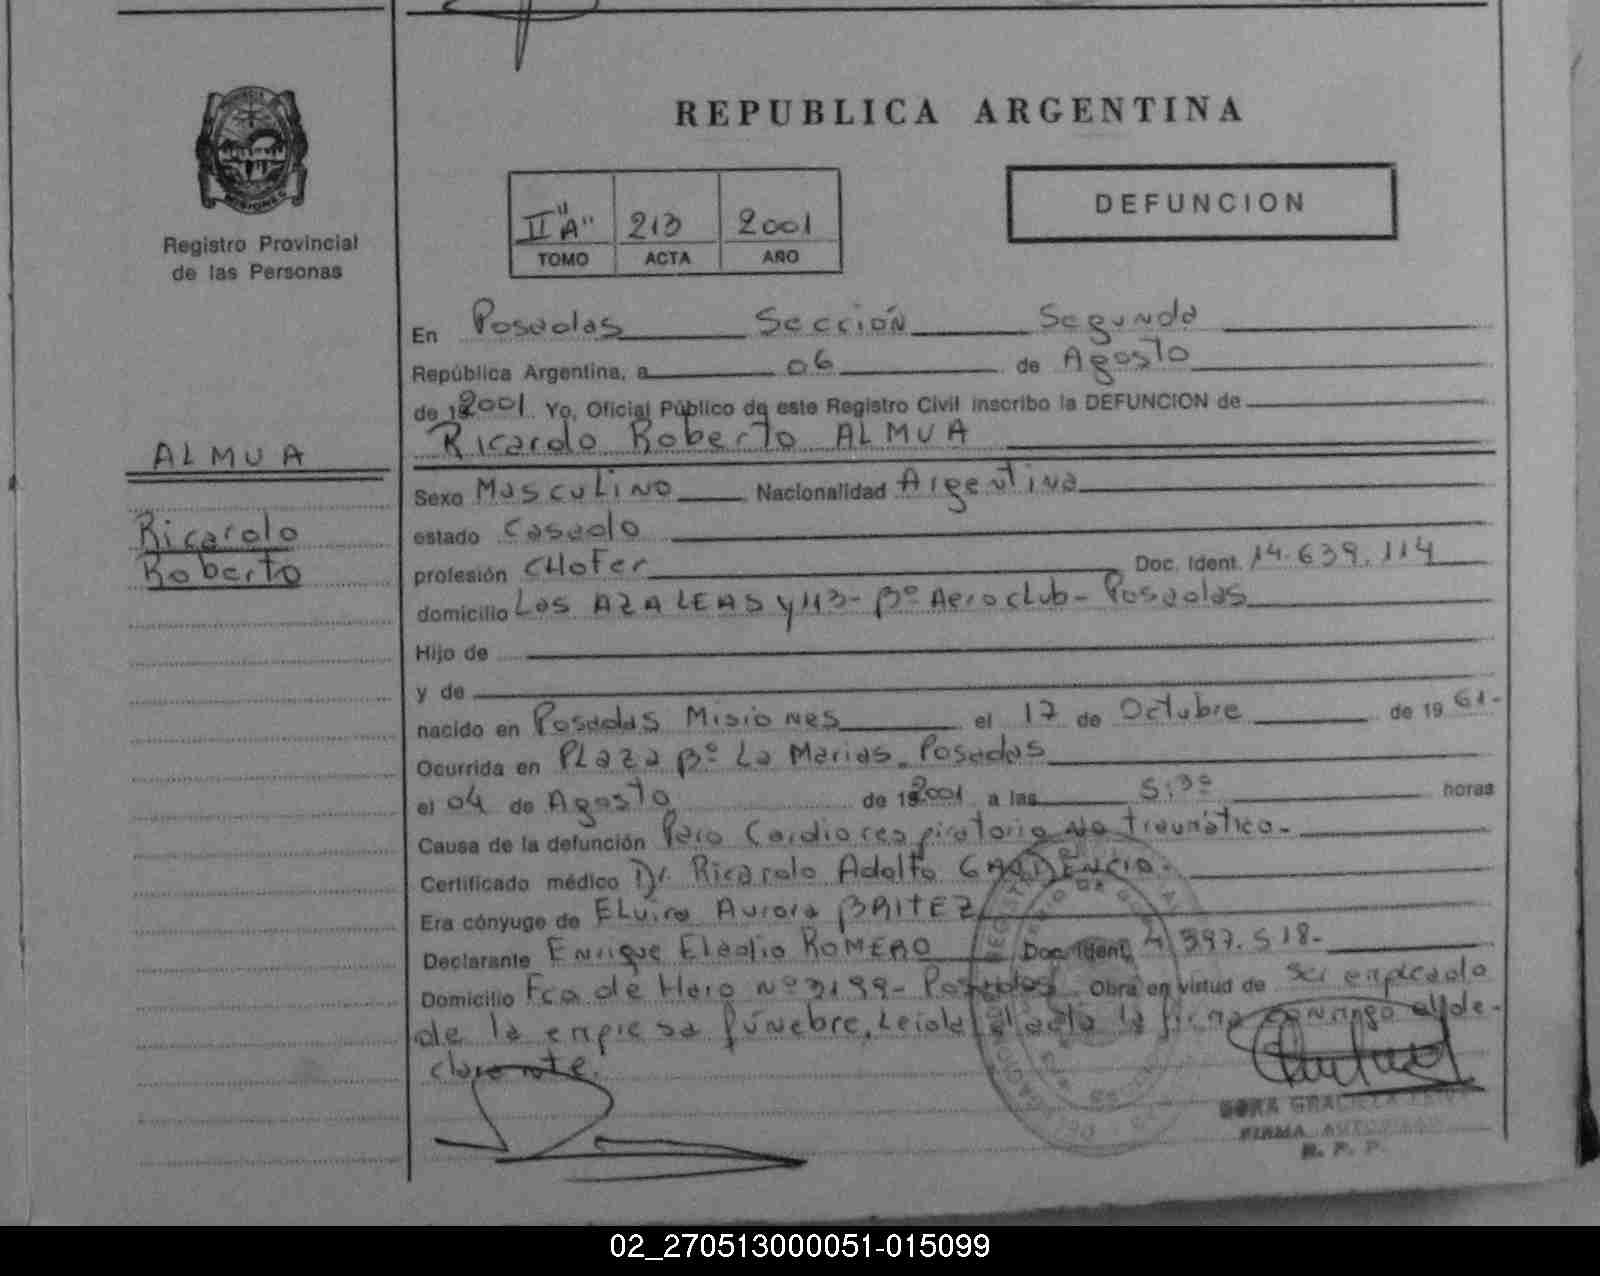 REPUBLICA ARGENTINA
MISIONES
Registro Provincial
de las Personas
II "A" 213 2001
TOMO ACTA AÑO
DEFUNCION
ALMUA
Ricardo
Roberto
En Posadas Sección Segunda
República Argentina, a 06 de Agosto
de 2001 Yo, Oficial Público de este Registro Civil inscribo la DEFUNCION de
Ricardo Roberto ALMUA
Sexo Masculino Nacionalidad Argentina
estado Casado
profesión CHofer Doc. Ident. 14.639.114
domicilio Las AZALEAS y 113- Bº Aeroclub- Posadas
Hijo de
y de
nacido en Posadas Misiones el 17 de Octubre de 1961-
Ocurrida en PLaza Bº La Marias. Posadas
el 04 de Agosto de 2001 a las 5:30 horas
Causa de la defunción Paro Cardiorespiratorio No traumático-
Certificado médico Dr. Ricardo Adolfo GAUDENCIO.
Era cónyuge de ELvira Aurora BRITEZ
Declarante Enrique Eladio ROMERO Doc. Ident. 4.397.518-
Domicilio Fca de Haro Nº 3199- Posadas Obra en virtud de ser empleado
de la empresa fúnebre, Leida el acta la firma conmigo el de-
clarante.
FIRMA AUTORIZADA
R. P. P.
02_270513000051-015099